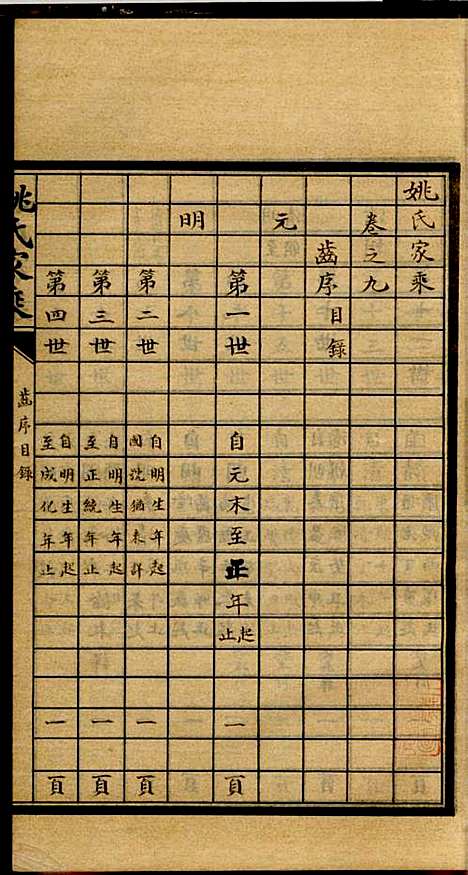 姚氏家乘
卷之九
齒序目錄
元
第一世 自元末至正年起止 一頁
明
第二世 自明生年起 國說猶未詳 一頁
第三世 自明生年起 至正統年止 一頁
第四世 自明生年起 至成化年止 一頁
姚氏家乘 齒序目錄